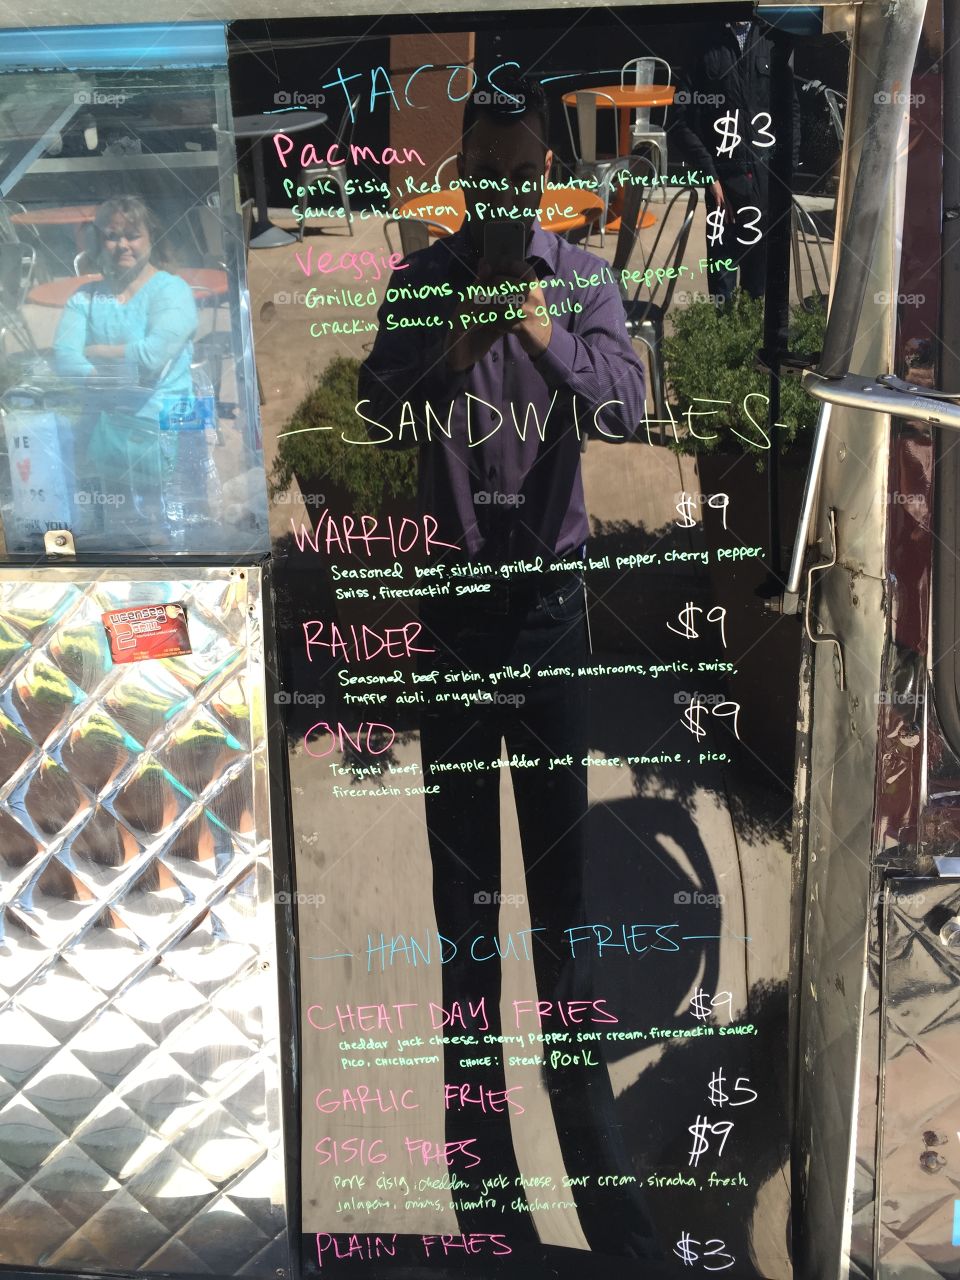 TACOS
Pacman $3
Pork sisig, Red onions, cilantro, firecrackin
sauce, chicurron, Pineapple
Veggie $3
Grilled onions, mushroom, bell pepper, Fire
crackin Sauce, pico de gallo
SANDWICHES
WARRIOR $9
Seasoned beef sirloin, grilled onions, bell pepper, cherry pepper,
Swiss, firecrackin' sauce
RAIDER $9
Seasoned beef sirloin, grilled onions, mushrooms, garlic, swiss,
truffle aioli, arugula
ONO $9
Teriyaki beef, pineapple, cheddar jack cheese, romaine, pico,
firecrackin sauce
HAND CUT FRIES
CHEAT DAY FRIES $9
cheddar jack cheese, cherry pepper, sour cream, firecrackin sauce,
pico, chicharron CHOICE: steak, Pork
GARLIC FRIES $5
SISIG FRIES $9
Pork sisig, cheddar jack cheese, sour cream, siracha, fresh
jalapeno, onions, cilantro, chicharron
PLAIN FRIES $3
WE
YOU
LICENSED
2 GRILL
foap